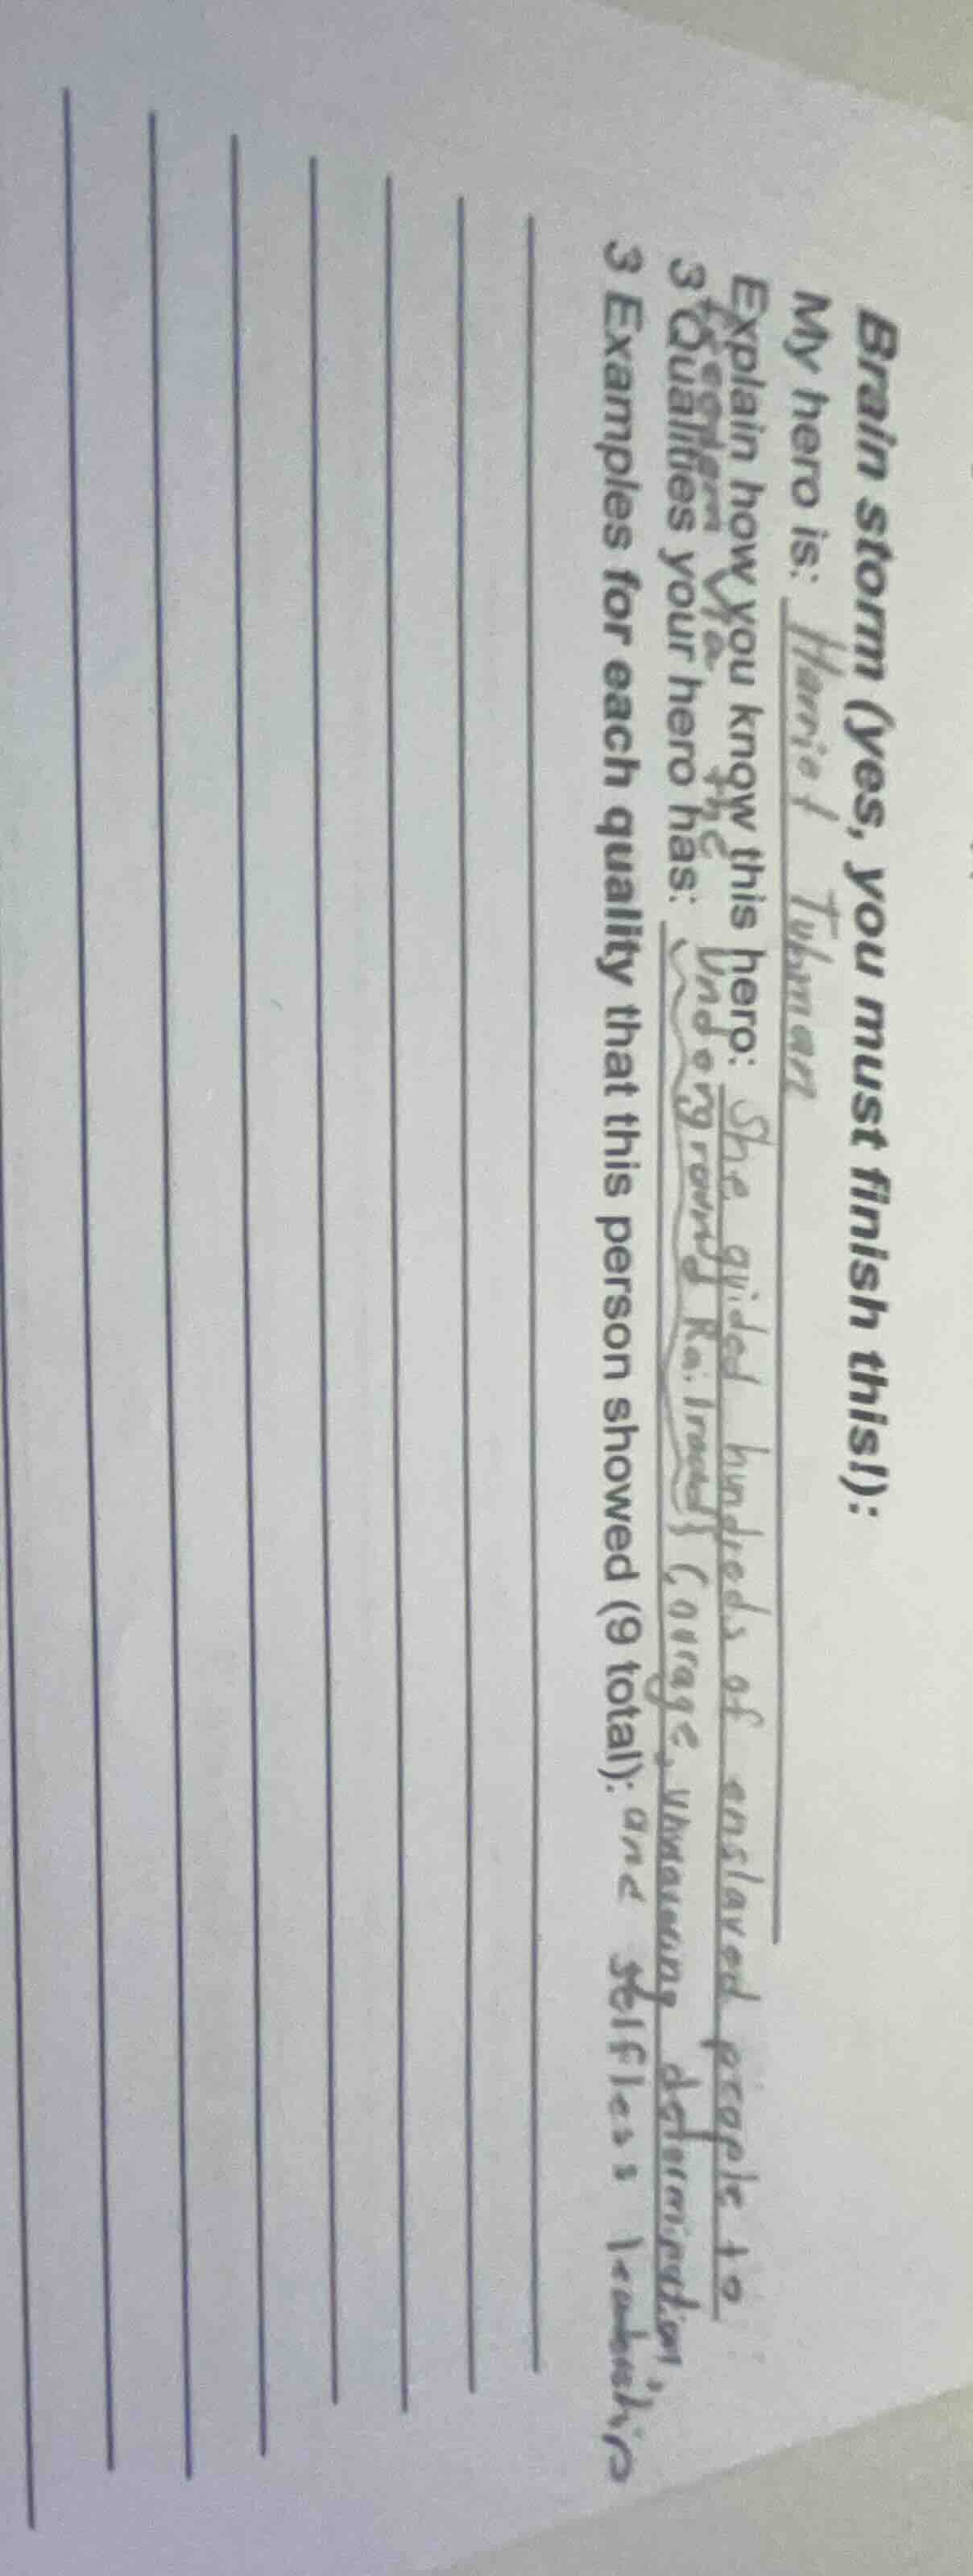 Brain storm (yes, you must finish this!):
My hero is: Harriet Tubman
Explain how you know this hero: She guided hundreds of enslaved people to
freedom via the Underground Railroad
3 Qualities your hero has: Courage, unwavering determination,
and selfless leadership
3 Examples for each quality that this person showed (9 total):